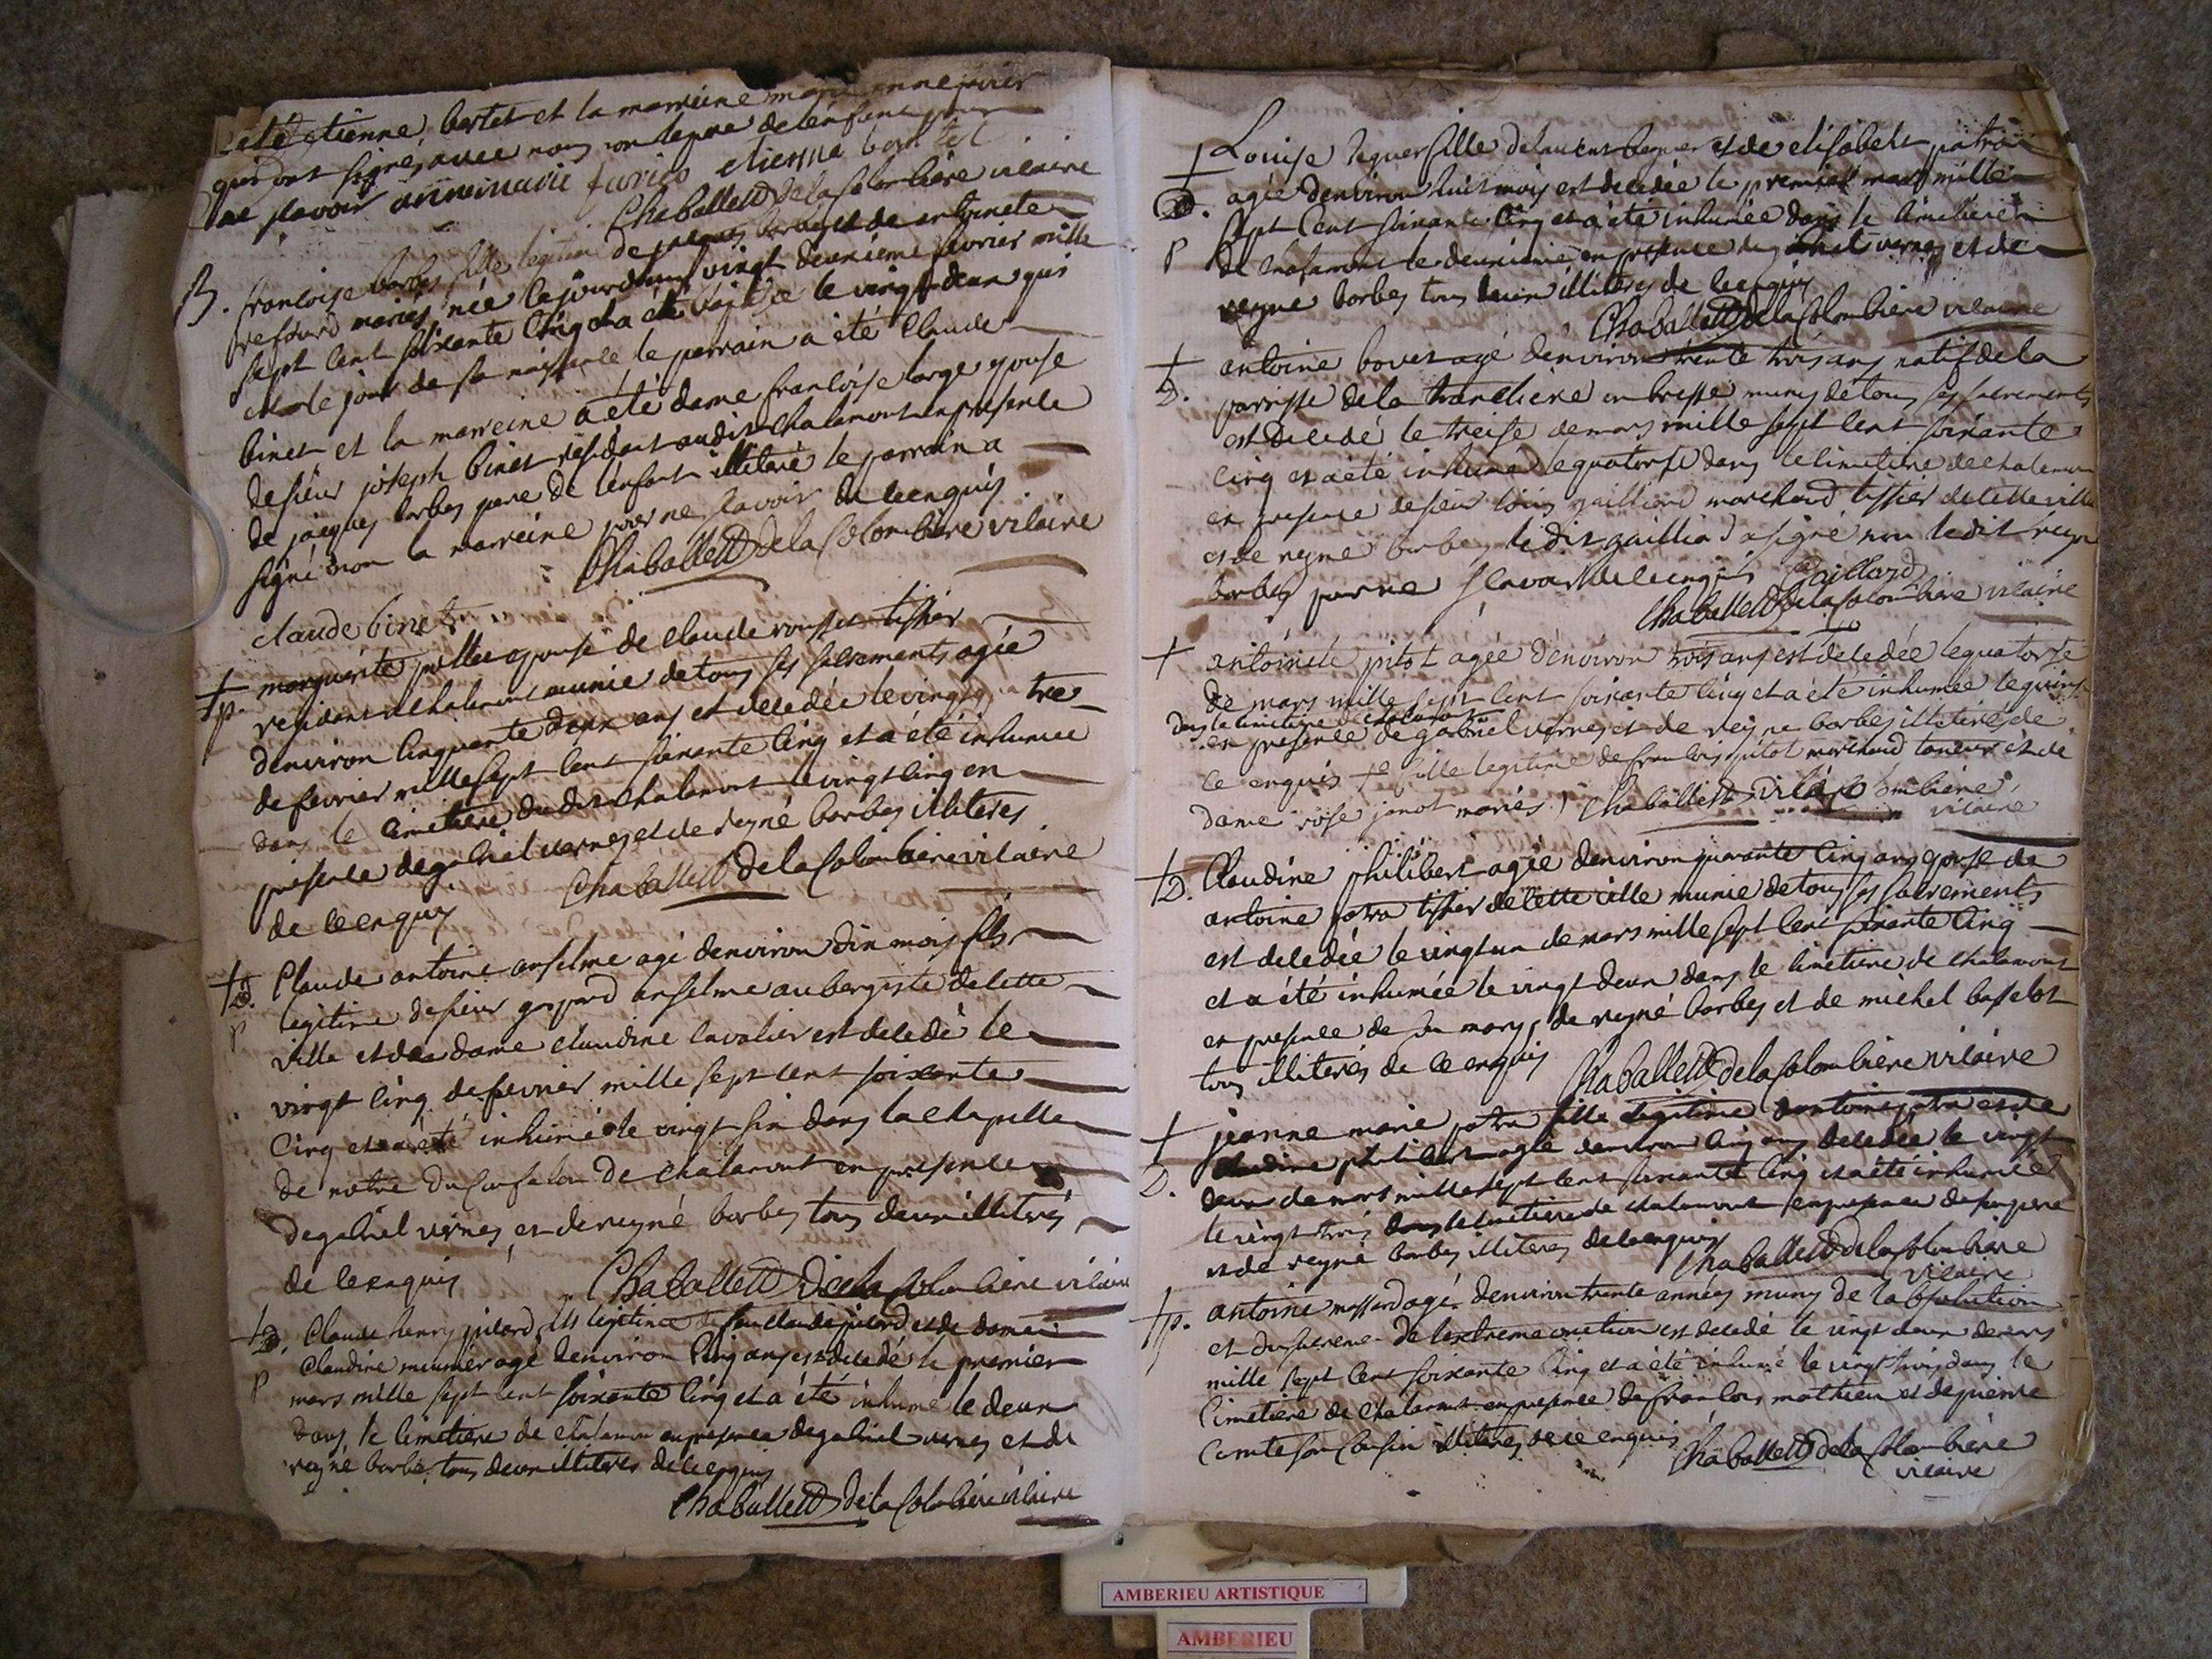 été etienne bertet et la marreine marie anne
qui ont signé avec nous non le pere de l'enfant pour
ne sçavoir annemarie etienne bertet
Chaballett de la Colombière vicaire
B. françoise barbes fille legitime de jacques barbes et de antoinete
refourd mariés née le jourdhuy vingt deuxieme fevrier mille
sept cent soixante cinq et a été le vingt deux qui
est le jour de sa naissance le parrain a été Claude
binet et la marreine a été dame françoise large epouse
de sieur joseph binet résident audit chalamont en presence
de jacques barbes pere de l'enfant illiteré le parrain a
signé non la marreine pour ne sçavoir de ce enquis
Chaballett de la Colombière vicaire
claude binet
† marguerite epouse de claude rousset tissier
p. residant a chalamont munie de tous ses sacrements agée
denviron cinquante deux ans est decedée le vingt tre
de fevrier mille sept cent soixante cinq et a été inhumée
dans le cimetiere dudit chalamont le vingt cinq en
presence de gabriel vernes et de reyné barbes illiterés
de ce enquis Chaballett de la Colombière vicaire
† D. Claude antoine anselme agé denviron dix mois fils
p legitime de sieur gaspard anselme aubergiste de cette
ville et de dame claudine cavalier est decedé le
vingt cinq de fevrier mille sept cent soixante
cinq et a été inhumé le vingt six dans la chapelle
de notre du confalon de chalamont en presence
de gabriel vernes et de reyné barbes tous deux illiterés
de ce enquis Chaballett de la Colombière vicaire
† D. Claude henry pilard fils legitime de feu claude pilard et de dame
p claudine meunier agé denviron cinq ans est decedé le premier
mars mille sept cent soixante cinq et a été inhumé le deux
dans le cimetiere de chalamont en presence de gabriel vernes et de
reyné barbes tous deux illiterés de ce enquis
Chaballett de la Colombière vicaire
† Louise fille de laurent et de elisabeth patron
D. agée denviron huit mois est decedée le premier mars mille
sept cent soixante cinq et a été inhumée dans le cimetiere
p de chalamont le deuxieme en presence de vernes et de
reyné barbes tous deux illiterés de ce enquis
Chaballett de la Colombière vicaire
† antoine bovet agé denviron trente trois ans natif de la
D. parroisse de la tranclière en bresse muny de tous ses sacrements
est decedé le treise de mars mille sept cent soixante
cinq et a été inhumé le quatorse dans le cimetiere de chalamont
en presence de sieur louis gailliard marchand tissier de cette ville
et de reyné barbes le dit gailliard a signé non le dit reyné
barbes pour ne sçavoir de ce enquis Gaillard
Chaballett de la Colombière vicaire
† antoinete pitot agée denviron trois ans est decedée le quatorse
de mars mille sept cent soixante cinq et a été inhumée le quinse
dans la cimetiere de chalamont
en presence de gabriel vernes et de reyné barbes illiterés de
ce enquis † fille legitime de francois pitot marchand taneur et de
dame rose janot mariés Chaballett Colombière
vicaire
† D. Claudine philibert agée denviron quarante cinq ans epouse de
antoine patra tissier de cette ville munie de tous ses sacrements
est decedée le vingt un de mars mille sept cent soixante cinq
et a été inhumée le vingt deux dans le cimetiere de chalamont
en presence de son mary, de reyné barbes et de michel basselot
tous illiterés de ce enquis Chaballett de la Colombière vicaire
† jeanne marie patra fille legitime dantoine patra et de
claudine philibert agée denviron cinq ans decedée le vingt
D. deux de mars mille sept cent soixante cinq et a été inhumée
le vingt trois dans le cimetiere de chalamont en presence de son pere
et de reyné barbes illiterés de ce enquis
Chaballett de la Colombière
vicaire
† p. antoine massard agé denviron trente années muny de l'absolution
et du sacrement de l'extreme onction est decedé le vingt deux de mars
mille sept cent soixante cinq et a été inhumé le vingt trois dans le
cimetiere de chalamont en presence de francois mathieu et de pierre
comte son cousin illiterés de ce enquis Chaballett de la Colombière
vicaire
AMBERIEU ARTISTIQUE
AMBERIEU